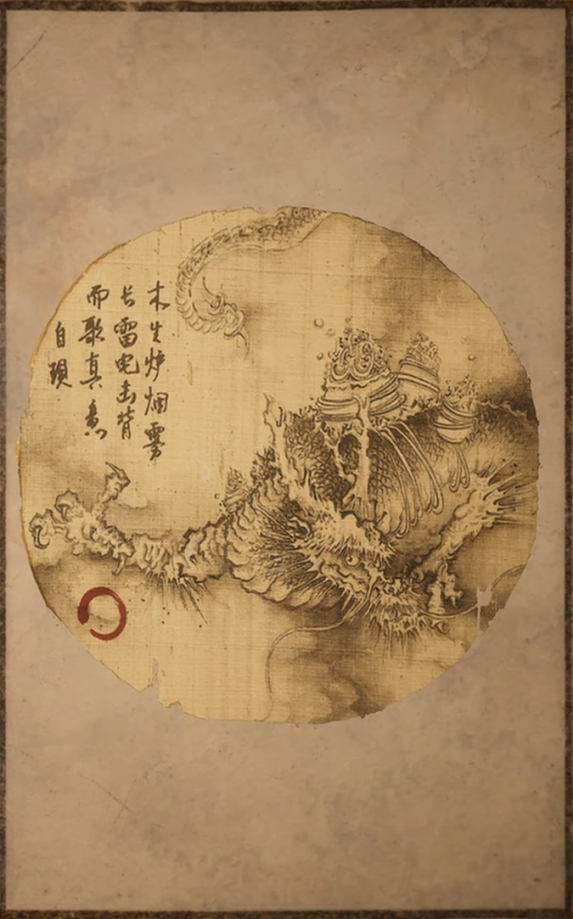 木生炉烟雾
长雷电击背
而歌真意
自瑣